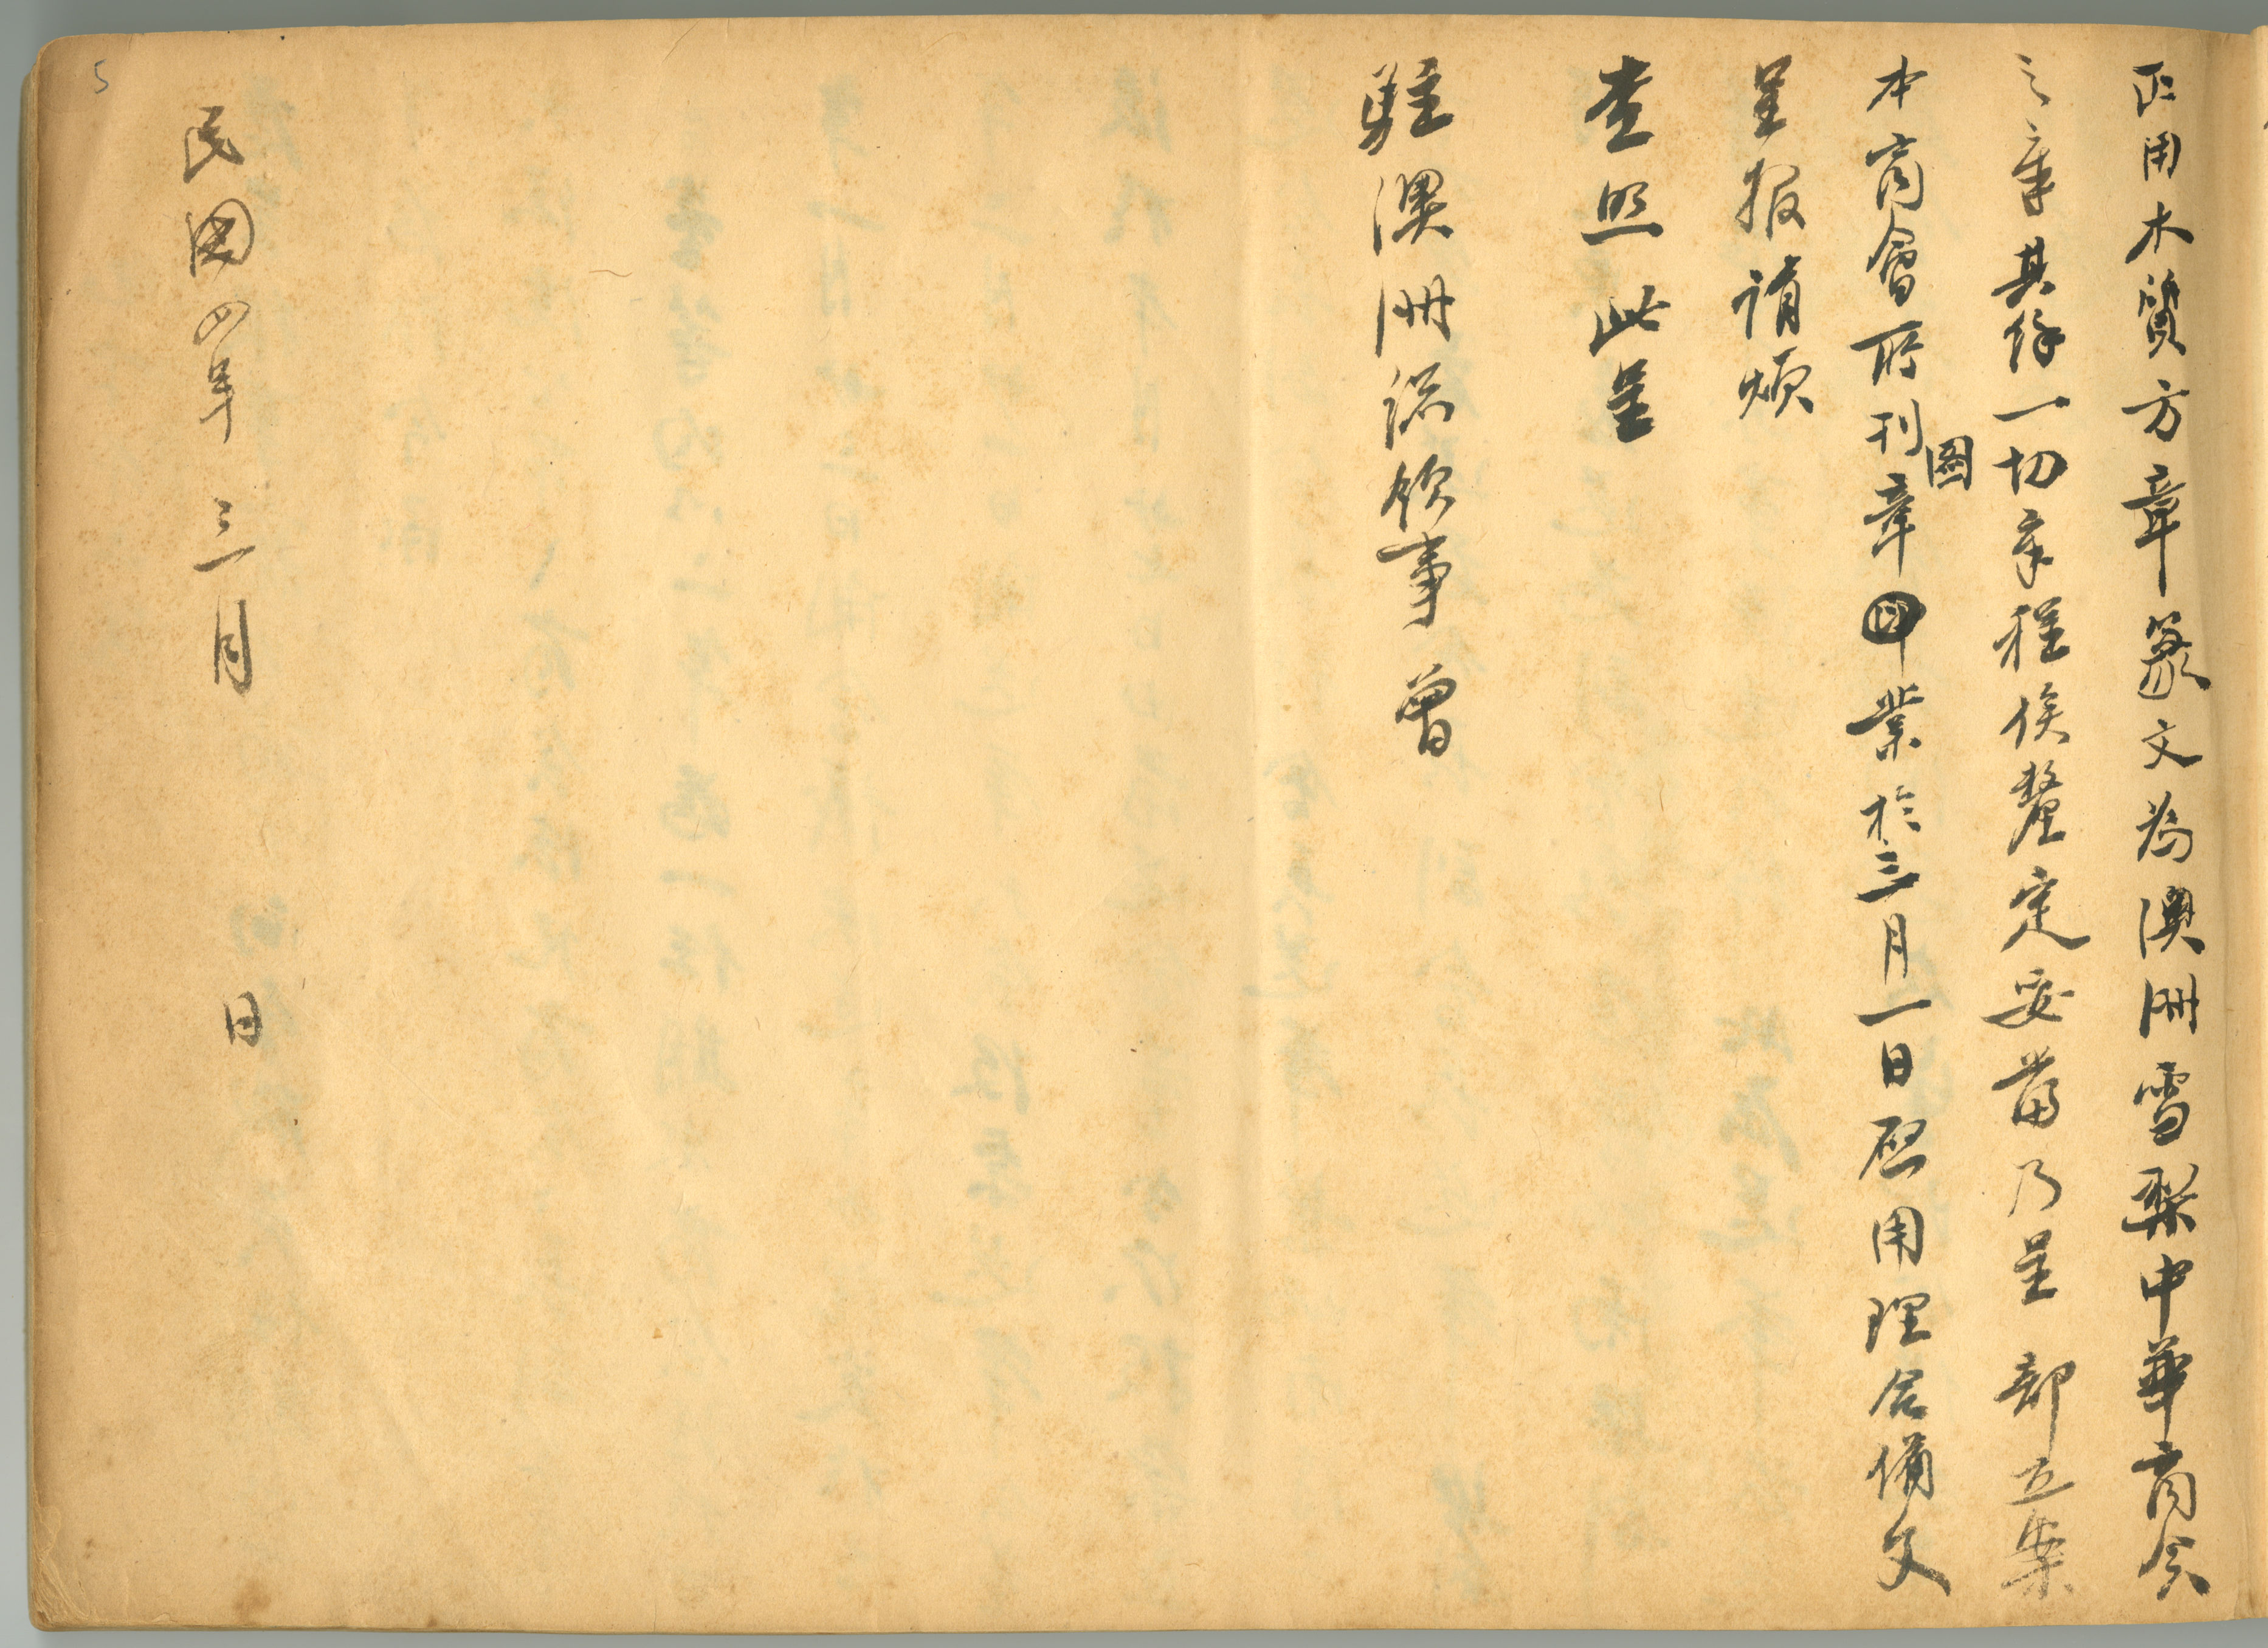 正用木質方章篆文為澳洲雪梨中華商會
之章其餘一切章程俟釐定妥當乃呈 部立案
本商會所刊圖章業於三月一日啟用理合備文
呈报請煩
查照此呈
駐澳洲總領事 曾
民國四年 三月 日
5